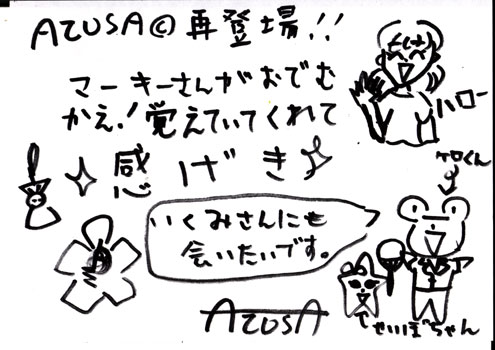 AZUSA© 再登場!!
マーキーさんがおでむ
かえ!覚えていてくれて
感げき
ハロー
ケロくん
いくみさんにも
会いたいです。
せいぼちゃん
AZUSA